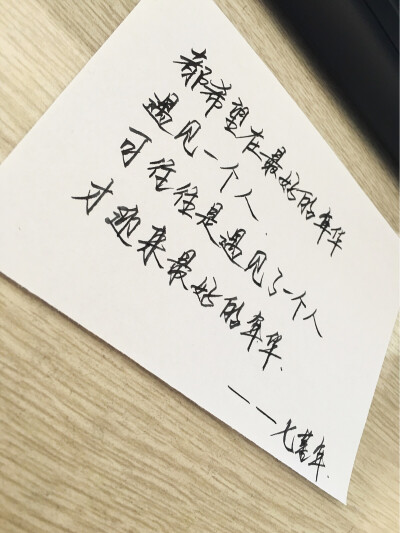 都希望在最好的年华
遇见一个人.
可往往是遇见了一个人
才迎来最好的年华.
——七暮年.